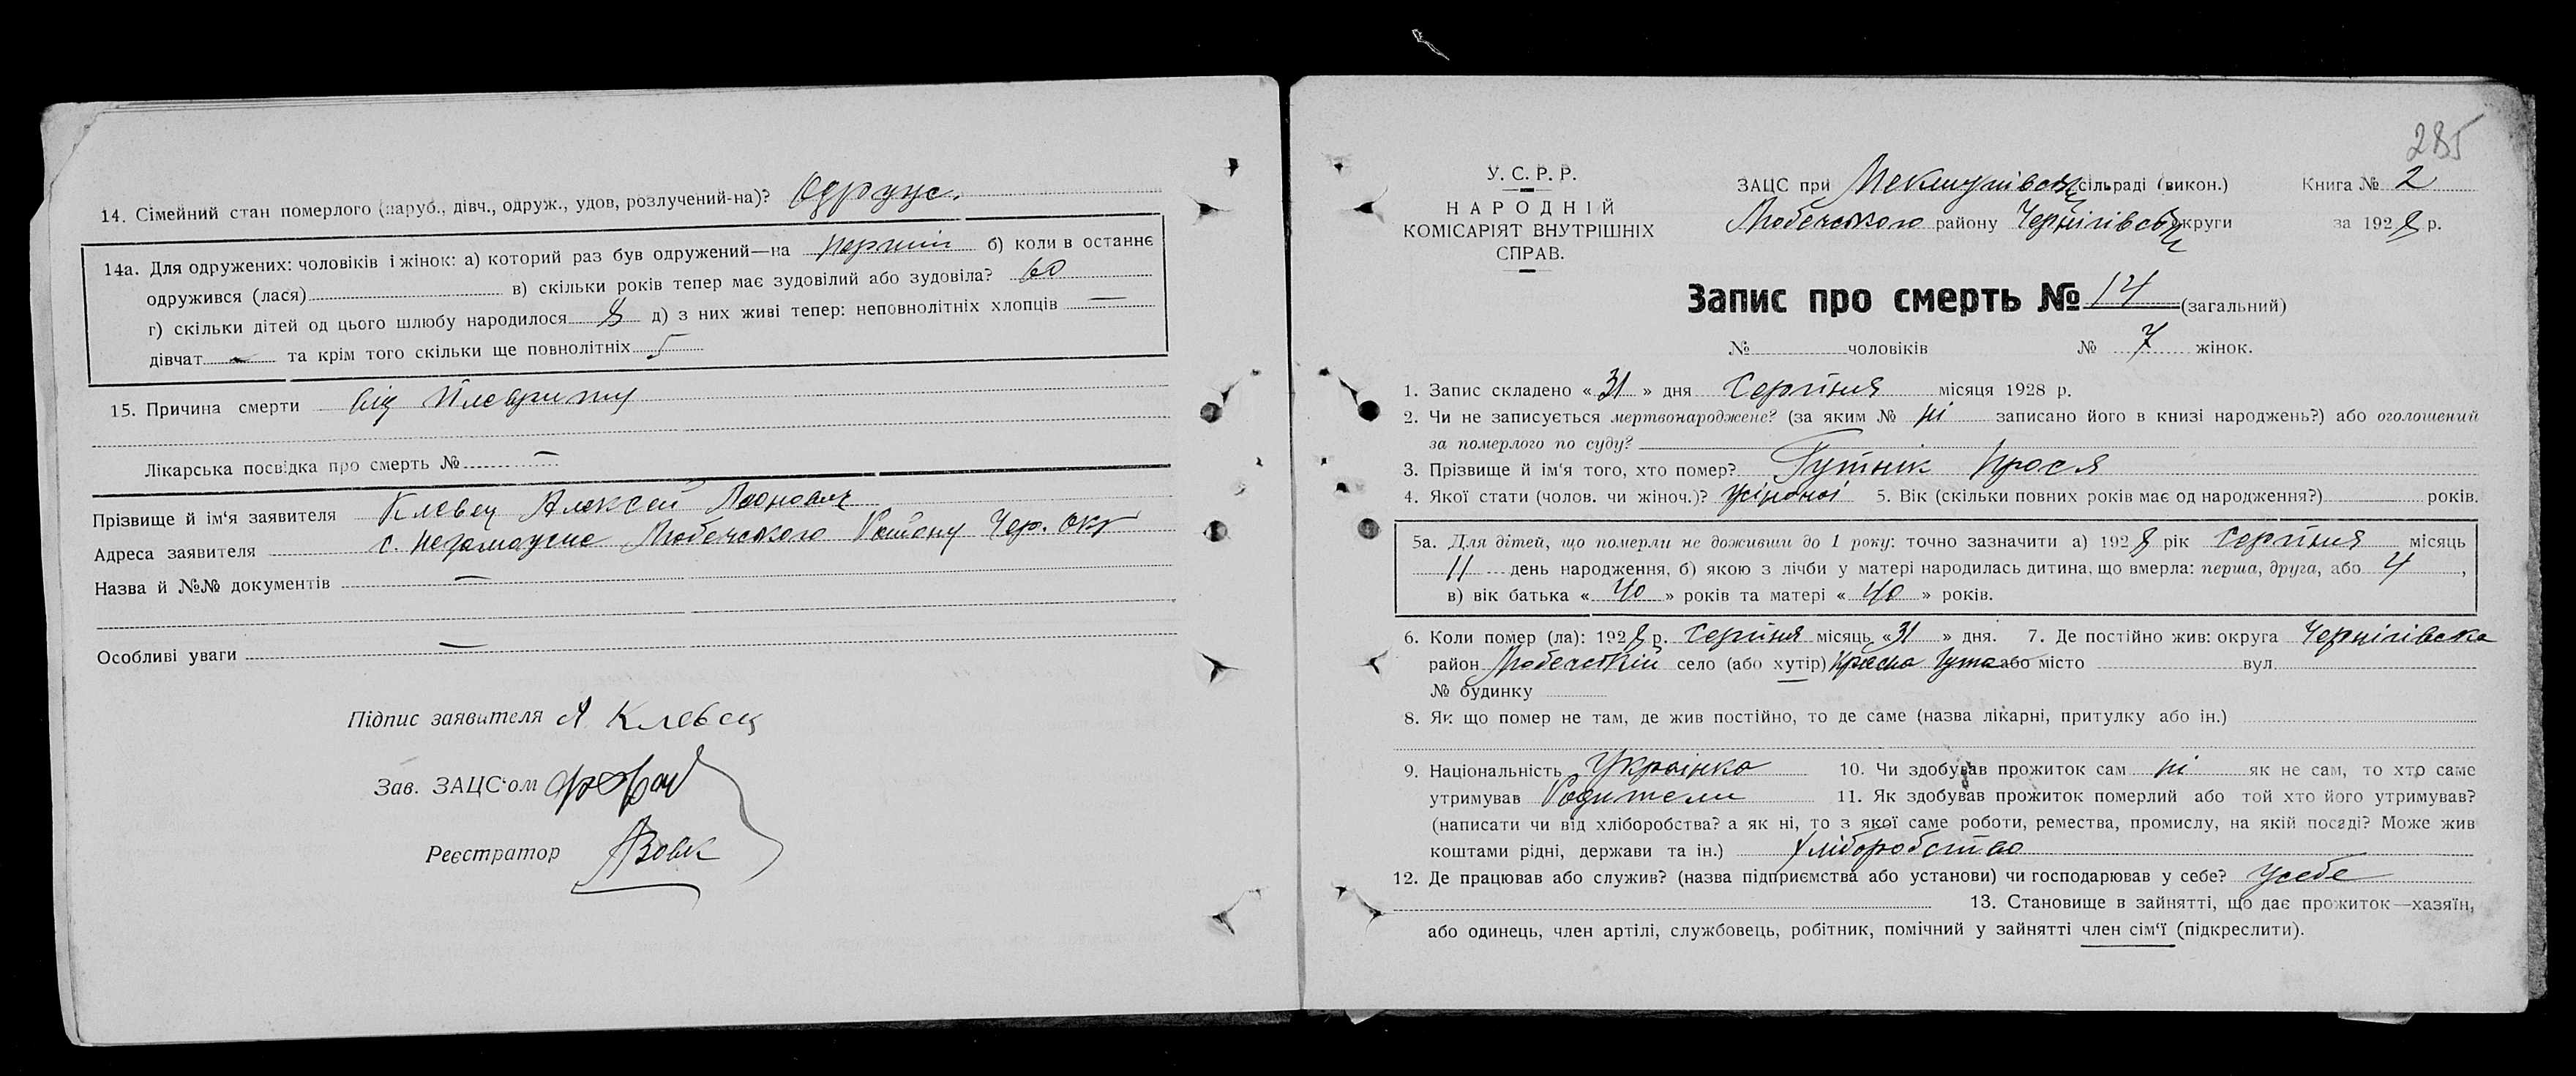 14. Сімейний стан померлого (паруб., дівч., одруж., удов, розлучений-на)? Одруж.
14а. Для одружених: чоловіків і жінок: а) который раз був одружений—на перший б) коли в останнє
одружився (лася) в) скільки років тепер має зудовілий або зудовіла? 60
г) скільки дітей од цього шлюбу народилося 8 д) з них живі тепер: неповнолітніх хлопців —
дівчат — та крім того скільки ще повнолітніх 5
15. Причина смерти від Плевриту
Лікарська посвідка про смерть № —
Прізвище й ім'я заявителя Клевец Алексей
Адреса заявителя с. Любечського Району Чер. окр
Назва й №№ документів —
Особливі уваги —
Підпис заявителя А Клевец
Зав. ЗАЦС'ом
Реєстратор АВовк
285
У. С. Р. Р.
НАРОДНІЙ
КОМІСАРІЯТ ВНУТРІШНІХ
СПРАВ.
ЗАЦС при сільраді (викон.) Книга № 2
Любечського району Чернігівськ округи за 1928 р.
Запис про смерть № 14 (загальний)
№ чоловіків № 7 жінок.
1. Запис складено «31» дня Серпня місяця 1928 р.
2. Чи не записується мертвонароджене? (за яким № ні записано його в книзі народжень?) або оголошений
за померлого по суду?
3. Прізвище й ім'я того, хто помер? Гутник Прося
4. Якої стати (чолов. чи жіноч.)? жіночої 5. Вік (скільки повних років має од народження?) років.
5а. Для дітей, що померли не доживши до 1 року: точно зазначити а) 1928 рік Серпня місяць
11 день народження, б) якою з лічби у матері народилась дитина, що вмерла: перша, друга, або 4,
в) вік батька «40» років та матері «40» років.
6. Коли помер (ла): 1928 р. Серпня місяць «31» дня. 7. Де постійно жив: округа Чернігівська
район Любечський село (або хутір) Красна Гута або місто вул.
№ будинку
8. Як що помер не там, де жив постійно, то де саме (назва лікарні, притулку або ін.)
9. Національність Українка 10. Чи здобував прожиток сам ні як не сам, то хто саме
утримував Родители 11. Як здобував прожиток померлий або той хто його утримував?
(написати чи від хліборобства? а як ні, то з якої саме роботи, ремества, промислу, на якій посаді? Може жив
коштами рідні, держави та ін.) Хліборобство
12. Де працював або служив? (назва підприємства або установи) чи господарював у себе? усебе
13. Становище в зайнятті, що дає прожиток—хазяїн,
або одинець, член артілі, службовець, робітник, помічний у зайнятті член сім'ї (підкреслити).